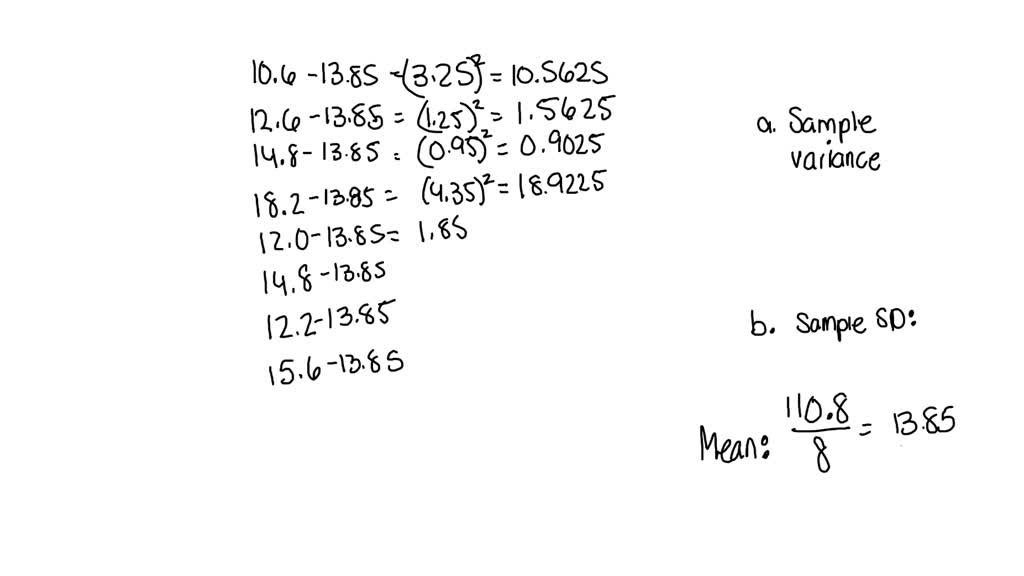 10.6 - 13.85 = (3.25)² = 10.5625
12.6 - 13.85 = (1.25)² = 1.5625
14.8 - 13.85 = (0.95)² = 0.9025
18.2 - 13.85 = (4.35)² = 18.9225
12.0 - 13.85 = 1.85
14.8 - 13.85
12.2 - 13.85
15.6 - 13.85
a. Sample
variance
b. Sample SD:
Mean: 110.8/8 = 13.85